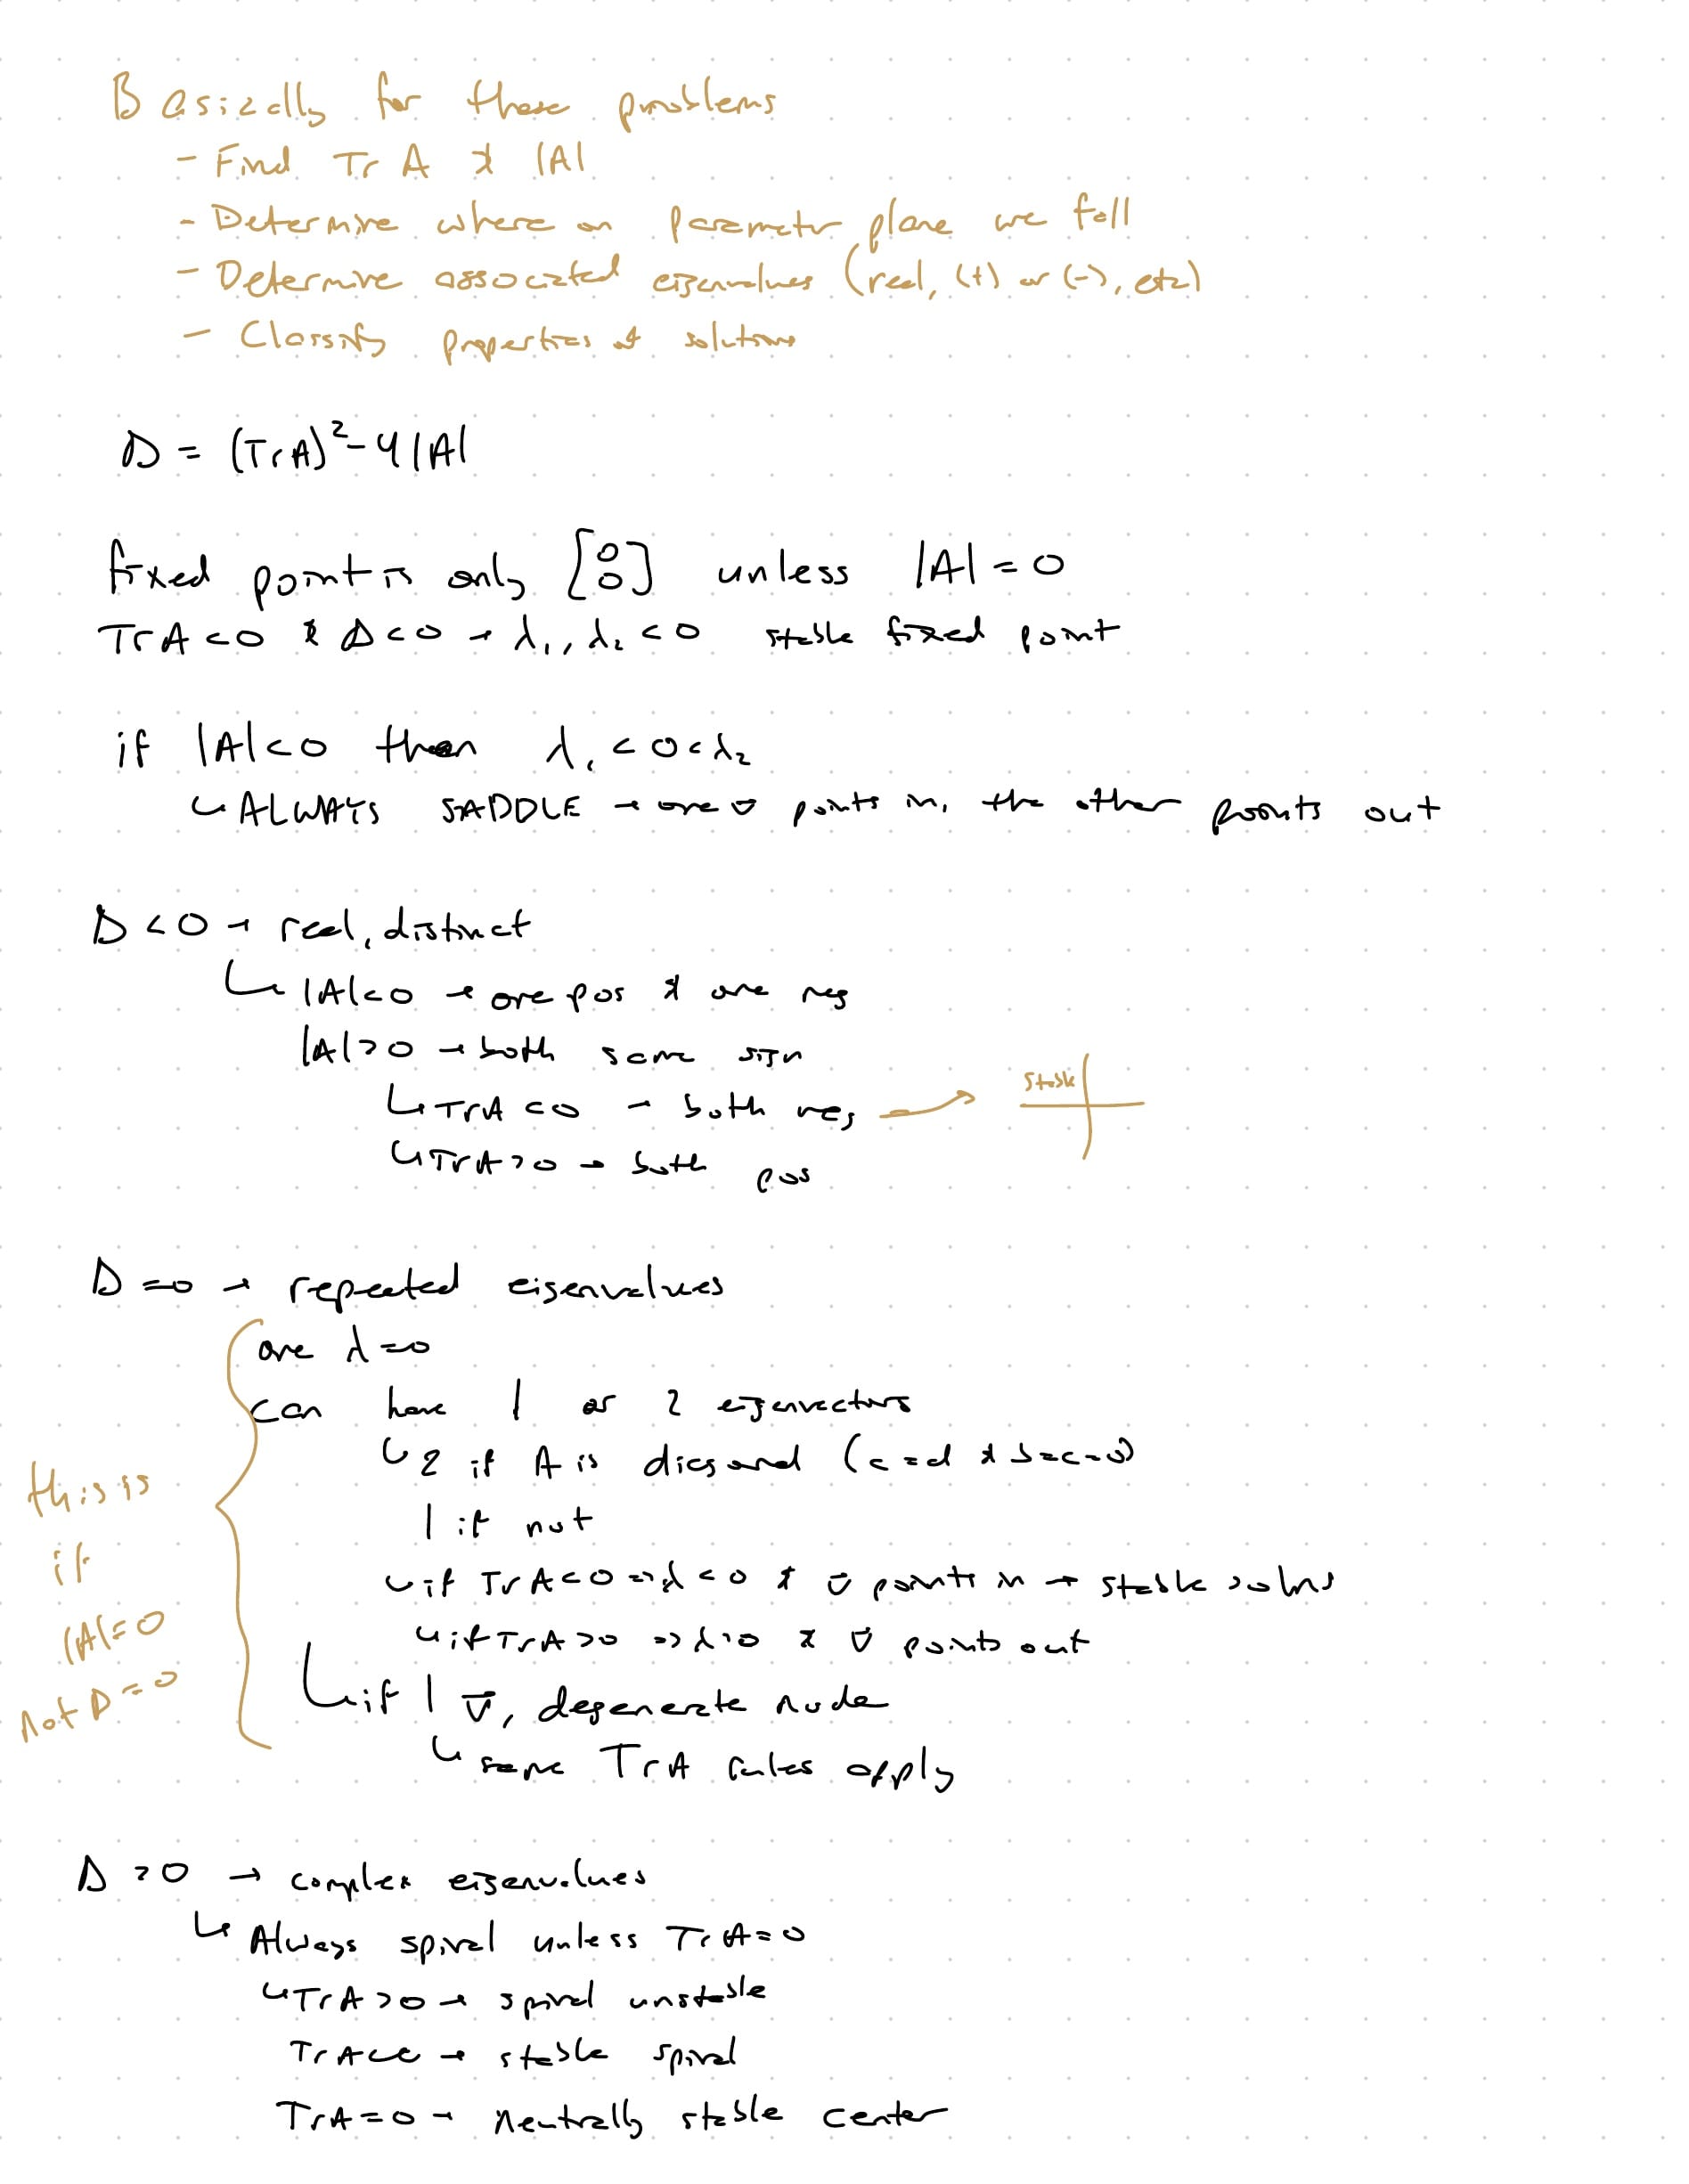 Basically for these problems
- Find Tr A & |A|
- Determine where on parameter plane we fall
- Determine associated eigenvalues (real, (+) or (-), etc)
- Classify properties of solutions
D = (TrA)² - 4|A|
fixed point is only [0 0] unless |A| = 0
TrA < 0 & D < 0 → λ₁, λ₂ < 0 stable fixed point
if |A| < 0 then λ₁ < 0 < λ₂
↳ ALWAYS SADDLE → one v̄ points in, the other points out
D < 0 → real, distinct
↳ |A| < 0 → one pos & one neg
|A| > 0 → both same sign
↳ TrA < 0 → both neg →
stable
↳ TrA > 0 → both pos
D = 0 → repeated eigenvalues
one λ = 0
can have 1 or 2 eigenvectors
↳ 2 if A is diagonal (a = d & b = c = 0)
1 if not
↳ if TrA < 0 => λ < 0 & v̄ points in → stable solns
↳ if TrA > 0 => λ > 0 & v̄ points out
↳ if 1 v̄, degenerate node
↳ same TrA rules apply
this is
if
|A| = 0
not D = 0
D > 0 → complex eigenvalues
↳ Always spiral unless TrA = 0
↳ TrA > 0 → spiral unstable
TrA < 0 → stable spiral
TrA = 0 → neutrally stable center